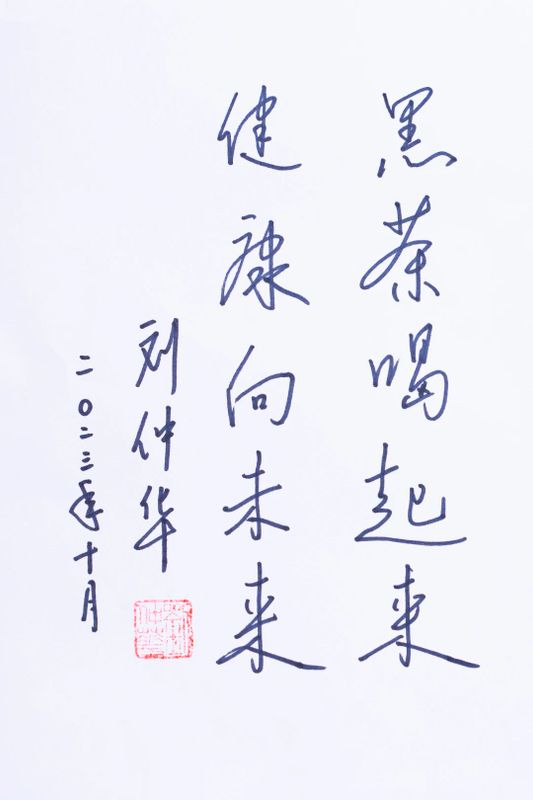 黑茶喝起来
健康向未来
刘仲华
二0二三年十月